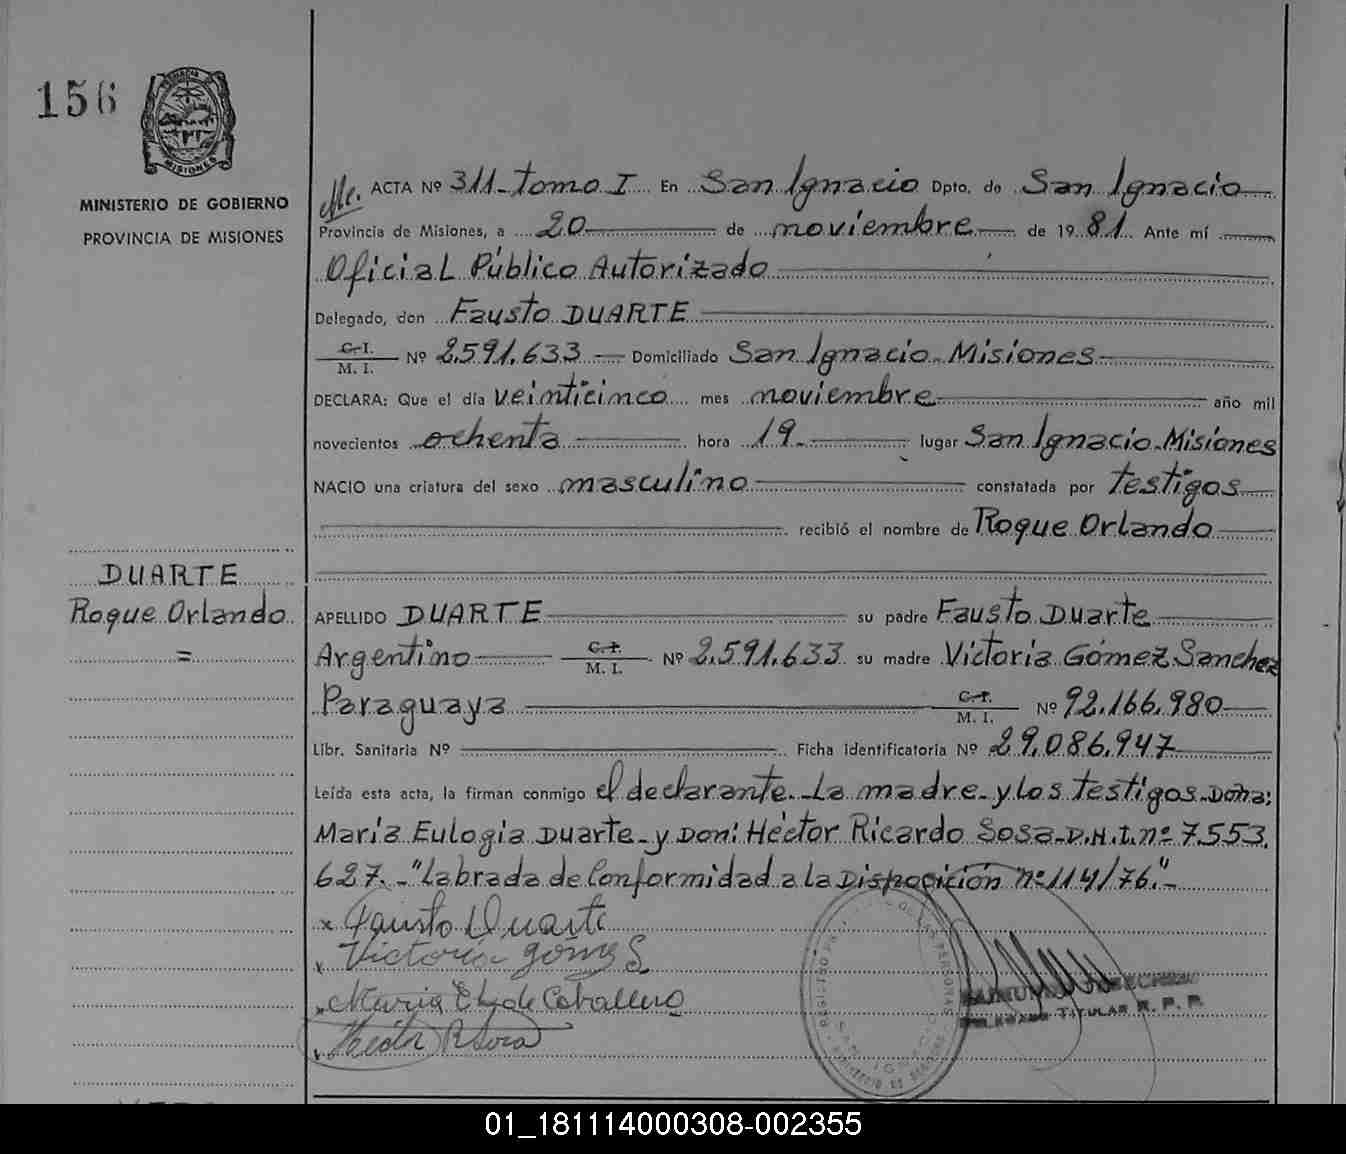 156
MISIONES
MINISTERIO DE GOBIERNO
PROVINCIA DE MISIONES
DUARTE
Roque Orlando
=
ACTA Nº 311-Tomo I En San Ignacio Dpto. de San Ignacio
Provincia de Misiones, a 20 de noviembre de 1981 Ante mí
Oficial Público Autorizado
Delegado, don Fausto DUARTE
C. I.
M. I. Nº 2.591.633 Domiciliado San Ignacio-Misiones
DECLARA: Que el día veinticinco mes noviembre año mil
novecientos ochenta hora 19 lugar San Ignacio-Misiones
NACIO una criatura del sexo masculino constatada por testigos
recibió el nombre de Roque Orlando
APELLIDO DUARTE su padre Fausto Duarte
Argentino C. I. M. I. Nº 2.591.633 su madre Victoria Gómez Sanchez
Paraguaya C. I. M. I. Nº 92.166.980
Libr. Sanitaria Nº Ficha identificatoria Nº 29.086.947
Leída esta acta, la firman conmigo el declarante-La madre-y Los testigos-Doña:
María Eulogia Duarte-y Don: Héctor Ricardo Sosa-D.N.I. nº 7.553.
627.-"Labrada de Conformidad a la Disposición nº 114/76."-
x Fausto Duarte
x Victoria Gómez S
Maria E de Caballero
Héctor R Sosa
TITULAR R. P. P.
01_181114000308-002355